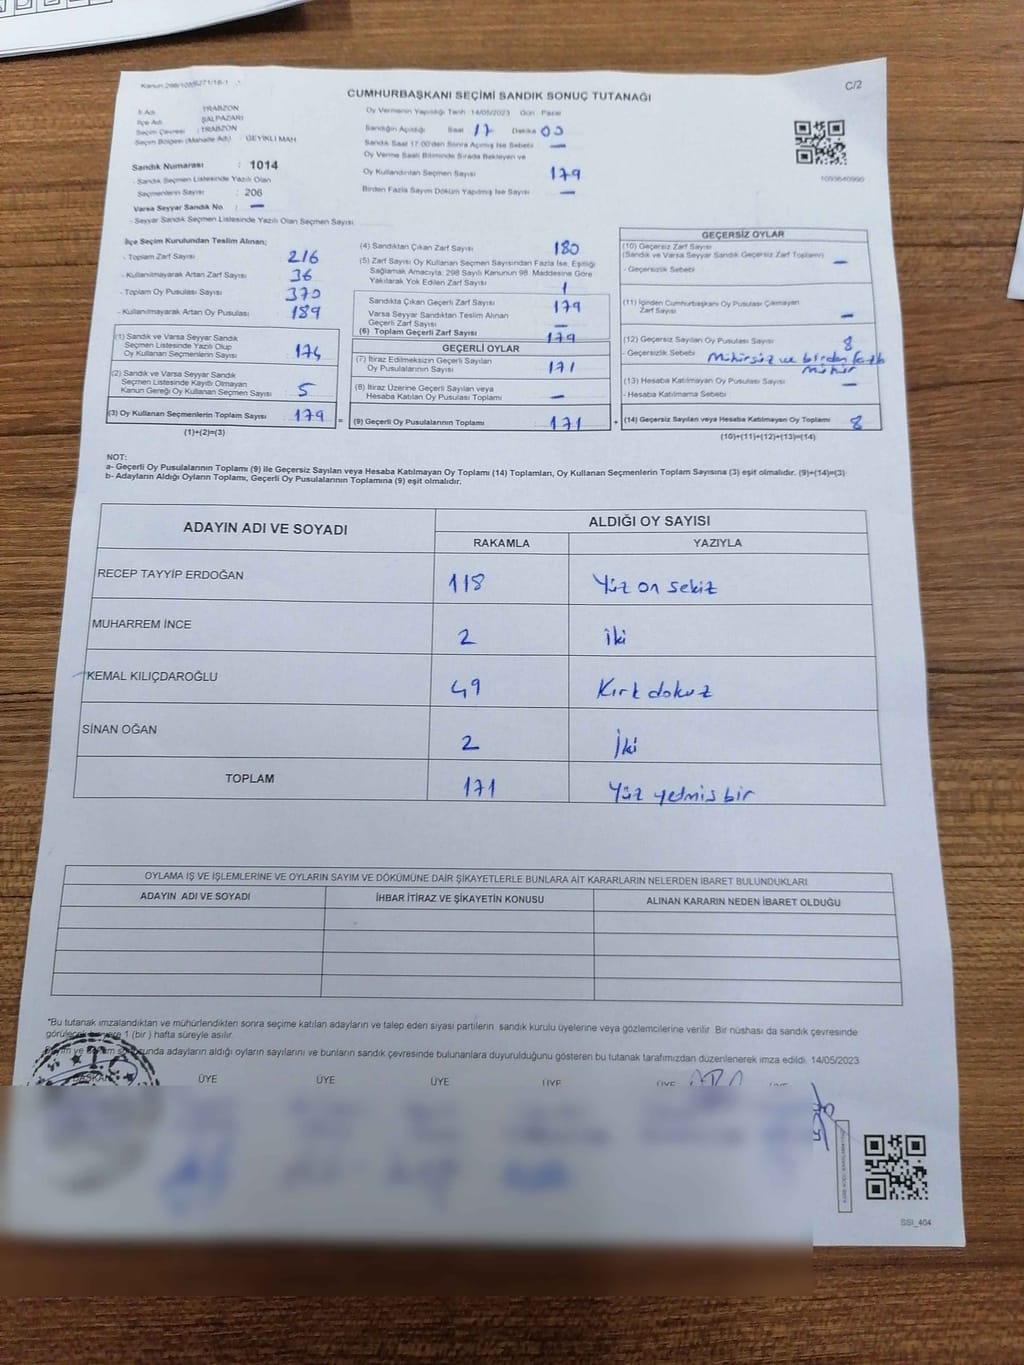 C/2
CUMHURBAŞKANI SEÇİMİ SANDIK SONUÇ TUTANAĞI
İl Adı : TRABZON
İlçe Adı : ŞALPAZARI
Seçim Çevresi : TRABZON
Seçim Bölgesi (Mahalle Adı) : GEYİKLİ MAH
Sandık Numarası : 1014
- Sandık Seçmen Listesinde Yazılı Olan
Seçmenlerin Sayısı : 206
Varsa Seyyar Sandık No : —
- Seyyar Sandık Seçmen Listesinde Yazılı Olan Seçmen Sayısı
Oy Vermenin Yapıldığı Tarih 14/05/2023 Gün Pazar
Sandığın Açıldığı Saat 17 Dakika 00
Sandık Saat 17:00'den Sonra Açılmış İse Sebebi —
Oy Verme Saati Bitiminde Sırada Bekleyen ve
Oy Kullandırılan Seçmen Sayısı 179
Birden Fazla Sayım Döküm Yapılmış İse Sayısı —
1093640990
İlçe Seçim Kurulundan Teslim Alınan;
- Toplam Zarf Sayısı 216
- Kullanılmayarak Artan Zarf Sayısı 36
- Toplam Oy Pusulası Sayısı 370
- Kullanılmayarak Artan Oy Pusulası 189
(1) Sandık ve Varsa Seyyar Sandık
Seçmen Listesinde Yazılı Olup
Oy Kullanan Seçmenlerin Sayısı 174
(2) Sandık ve Varsa Seyyar Sandık
Seçmen Listesinde Kayıtlı Olmayan
Kanun Gereği Oy Kullanan Seçmen Sayısı 5
(3) Oy Kullanan Seçmenlerin Toplam Sayısı 179 =
(1)+(2)=(3)
(4) Sandıktan Çıkan Zarf Sayısı 180
(5) Zarf Sayısı Oy Kullanan Seçmen Sayısından Fazla İse, Eşitliği
Sağlamak Amacıyla; 298 Sayılı Kanunun 98. Maddesine Göre
Yakılarak Yok Edilen Zarf Sayısı 1
Sandıkta Çıkan Geçerli Zarf Sayısı 179
Varsa Seyyar Sandıktan Teslim Alınan
Geçerli Zarf Sayısı —
(6) Toplam Geçerli Zarf Sayısı 179
GEÇERLİ OYLAR
(7) İtiraz Edilmeksizin Geçerli Sayılan
Oy Pusulalarının Sayısı 171
(8) İtiraz Üzerine Geçerli Sayılan veya
Hesaba Katılan Oy Pusulası Toplamı —
(9) Geçerli Oy Pusulalarının Toplamı 171 +
GEÇERSİZ OYLAR
(10) Geçersiz Zarf Sayısı
(Sandık ve Varsa Seyyar Sandık Geçersiz Zarf Toplamı) —
- Geçersizlik Sebebi
(11) İçinden Cumhurbaşkanı Oy Pusulası Çıkmayan
Zarf Sayısı —
(12) Geçersiz Sayılan Oy Pusulası Sayısı 8
- Geçersizlik Sebebi Mühürsüz ve birden fazla
Mühür
(13) Hesaba Katılmayan Oy Pusulası Sayısı —
- Hesaba Katılmama Sebebi
(14) Geçersiz Sayılan veya Hesaba Katılmayan Oy Toplamı 8
(10)+(11)+(12)+(13)=(14)
NOT:
a- Geçerli Oy Pusulalarının Toplamı (9) ile Geçersiz Sayılan veya Hesaba Katılmayan Oy Toplamı (14) Toplamları, Oy Kullanan Seçmenlerin Toplam Sayısına (3) eşit olmalıdır. (9)+(14)=(3)
b- Adayların Aldığı Oyların Toplamı, Geçerli Oy Pusulalarının Toplamına (9) eşit olmalıdır.
ADAYIN ADI VE SOYADI ALDIĞI OY SAYISI
RAKAMLA YAZIYLA
RECEP TAYYİP ERDOĞAN 118 Yüz on sekiz
MUHARREM İNCE 2 iki
KEMAL KILIÇDAROĞLU 49 Kırk dokuz
SİNAN OĞAN 2 İki
TOPLAM 171 Yüz yetmiş bir
OYLAMA İŞ VE İŞLEMLERİNE VE OYLARIN SAYIM VE DÖKÜMÜNE DAİR ŞİKAYETLERLE BUNLARA AİT KARARLARIN NELERDEN İBARET BULUNDUKLARI
ADAYIN ADI VE SOYADI İHBAR İTİRAZ VE ŞİKAYETİN KONUSU ALINAN KARARIN NEDEN İBARET OLDUĞU
*Bu tutanak imzalandıktan ve mühürlendikten sonra seçime katılan adayların ve talep eden siyasi partilerin sandık kurulu üyelerine veya gözlemcilerine verilir. Bir nüshası da sandık çevresinde
görülecek bir yere 1 (bir ) hafta süreyle asılır.
adayların aldığı oyların sayılarını ve bunların sandık çevresinde bulunanlara duyurulduğunu gösteren bu tutanak tarafımızdan düzenlenerek imza edildi. 14/05/2023
BAŞKAN ÜYE ÜYE ÜYE ÜYE ÜYE
SSI_404